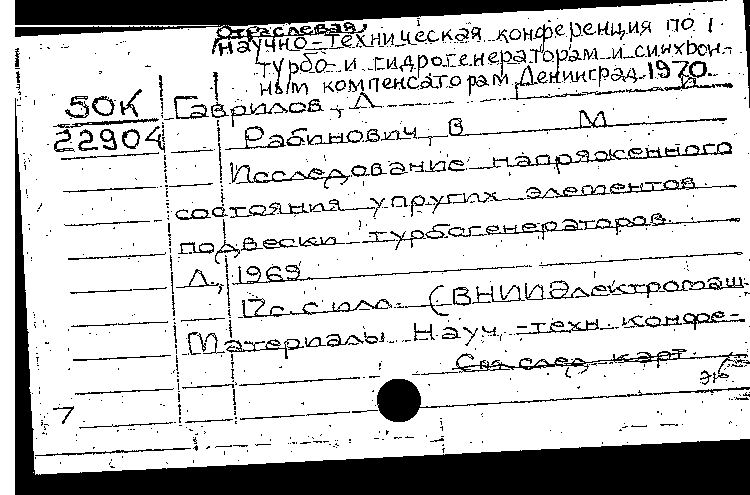 Отраслевая
научно-техническая конференция по
турбо- и гидрогенераторам и синхрон-
ным компенсаторам, Ленинград 1970.
50К Гаврилов, Л
22904 Рабинович, В М
Исследование напряженного
состояния упругих элементов
подвески турбогенераторов.
Л., 1969.
12с. с илл. (ВНИИЭлектромаш.
Материалы Науч.-техн. конфе-
См след карт.
7